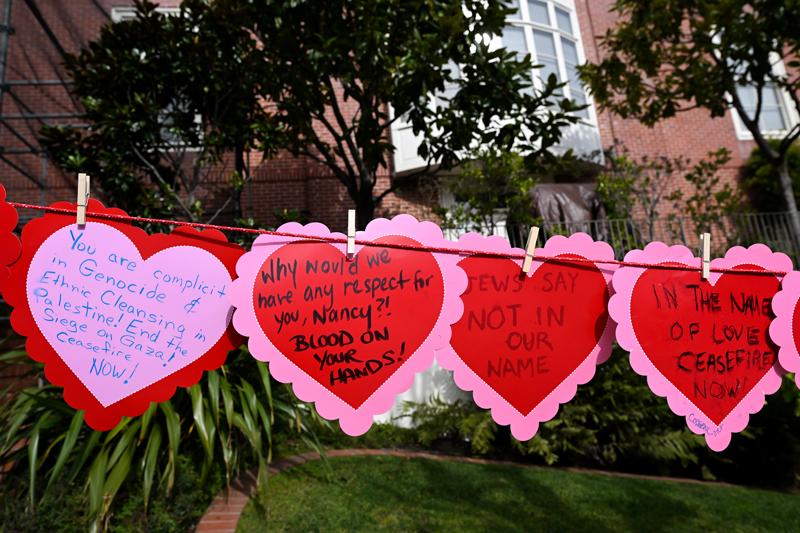 You are complicit
in Genocide &
Ethnic Cleansing in
Palestine! End the
Siege on Gaza!
Ceasefire
NOW!
Why would we
have any respect for
you, Nancy?!
BLOOD ON
YOUR
HANDS!
JEWS SAY
NOT IN
OUR
NAME
IN THE NAME
OF LOVE
CEASEFIRE
NOW!